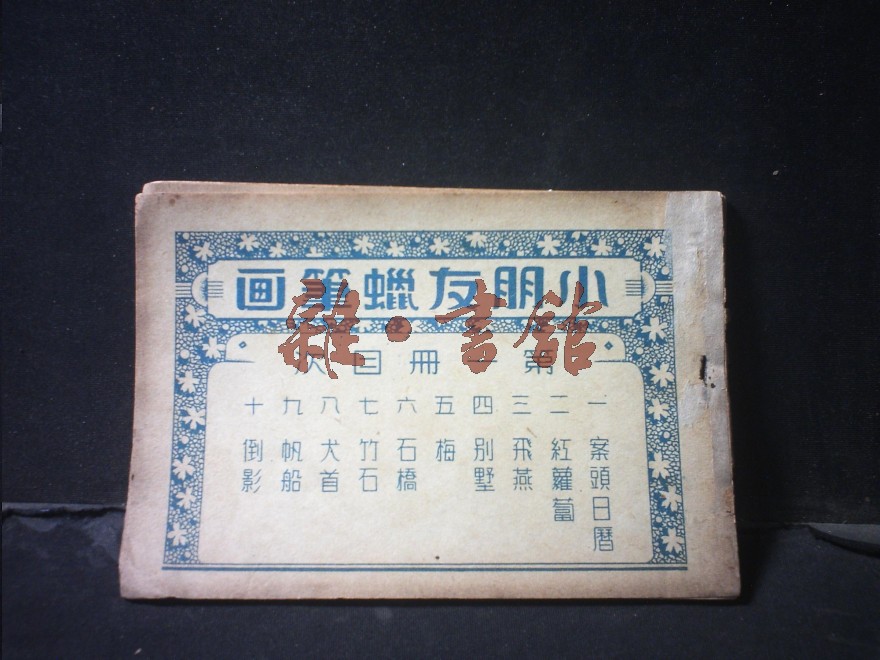 小朋友蠟筆画
第一册目次
一 案頭日曆
二 紅蘿蔔
三 飛燕
四 別墅
五 梅
六 石橋
七 竹石
八 犬首
九 帆船
十 倒影
雜·書館